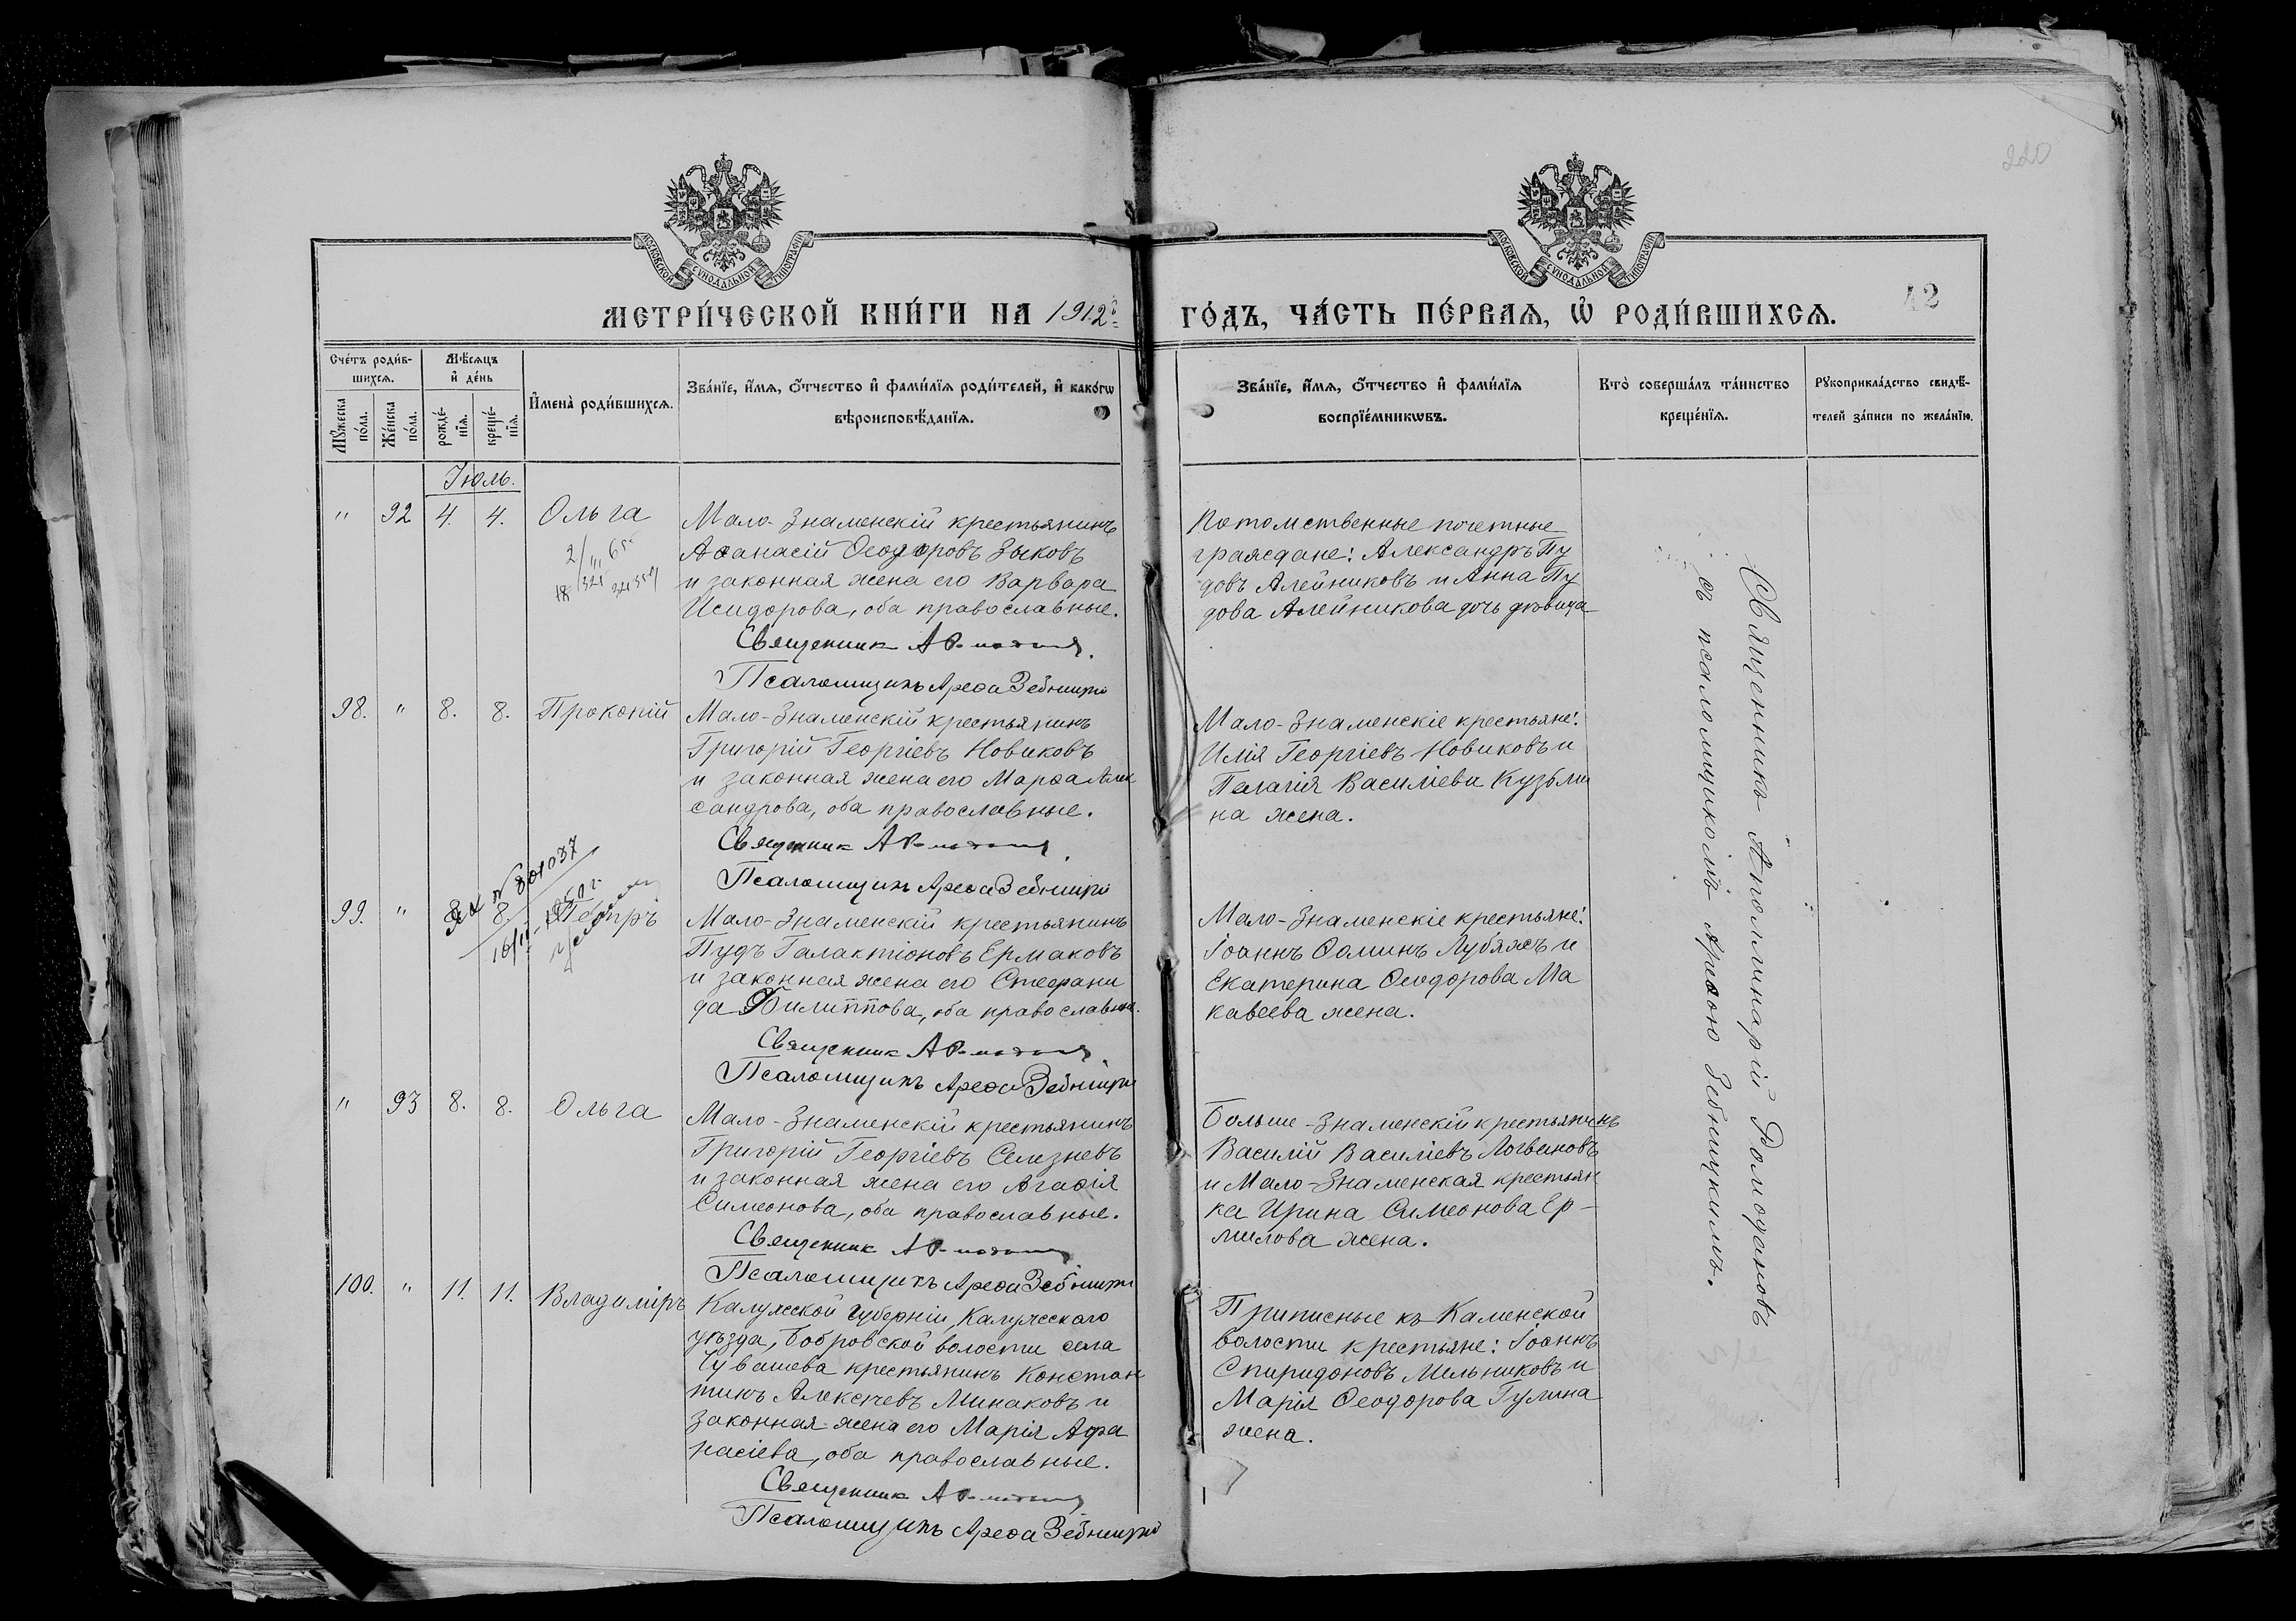 220
МОСКОВСКОЙ СѴНОДАЛЬНОЙ ТИПОГРАФІИ
МОСКОВСКОЙ СѴНОДАЛЬНОЙ ТИПОГРАФІИ
МЕТРИ́ЧЕСКОЙ КНИ́ГИ НА 1912й
ГО́ДЪ, ЧА́СТЬ ПЕ́РВАЯ, Ѡ РОДИ́ВШИХСЯ.
42
Сче́тъ роди́в-
шихся.
Мꙋ́жеска по́ла.
Же́нска по́ла.
Мѣ́сяцъ и де́нь
рожде́-нія.
креще́-нія.
Имена̀ роди́вшихся.
Зва́ніе, и́мя, о́тчество и фами́лія роди́телей, и како́гѡ
вѣроисповѣ́данія.
Зва́ніе, и́мя, о́тчество и фами́лія
воспріе́мникѡвъ.
Кто̀ соверша́лъ та́инство
креще́нія.
Рꙋкоприкла́дство свидѣ́-
телей за́писи по жела́нію.
Іюль.
" 92 4. 4. Ольга
Мало-Знаменскій крестьянинъ
Аѳанасій Ѳеодоровъ Зыковъ
и законная жена его Варвара
Исидорова, оба православные.
Священник
Псаломщикъ Ареѳа Зебницкій
Потомственные почетные
граждане: Александръ Пу
довъ Алейниковъ и Анна Пу
дова Алейникова дочь дѣвица
98. " 8. 8. Прокопій
Мало-Знаменскій крестьянинъ
Григорій Георгіевъ Новиковъ
и законная жена его Марѳа Алек
сандрова, оба православные.
Священник
Псаломщикъ Ареѳа Зебницкій
Мало-Знаменскіе крестьяне:
Илія Георгіевъ Новиковъ и
Пелагія Василіева Кузьми
на жена.
№ 801037
99. " 8. 8. Петръ
Мало-Знаменскій крестьянинъ
Пудъ Галактіоновъ Ермаковъ
и законная жена его Стефани
да Филиппова, оба православные.
Священник
Псаломщикъ Ареѳа Зебницкій
Мало-Знаменскіе крестьяне:
Іоаннъ Ѳоминъ Лубяжъ и
Екатерина Ѳеодорова Ма
кавеева жена.
" 93 8. 8. Ольга
Мало-Знаменскій крестьянинъ
Григорій Георгіевъ Селезневъ
и законная жена его Агаѳія
Симеонова, оба православные.
Священник
Псаломщикъ Ареѳа Зебницкій
Больше-Знаменскій крестьянинъ
Василій Василіевъ Логвиновъ
и Мало-Знаменская крестьян
ка Ирина Симеонова Ер-
милова жена.
100. " 11. 11. Владиміръ
Калужской губерніи, Калужскаго
уѣзда, Бобровской волости села
Чувашева крестьянинъ Констан
тинъ Алексѣевъ Минаковъ и
законная жена его Марія Афа
насіева, оба православные.
Священник
Псаломщикъ Ареѳа Зебницкій
Приписные къ Каменской
волости крестьяне: Іоаннъ
Спиридоновъ Мельниковъ и
Марія Ѳеодорова Гулина
жена.
Священникъ Аполлинарій Ромодановъ
съ псаломщикомъ Ареѳою Зебницкимъ.